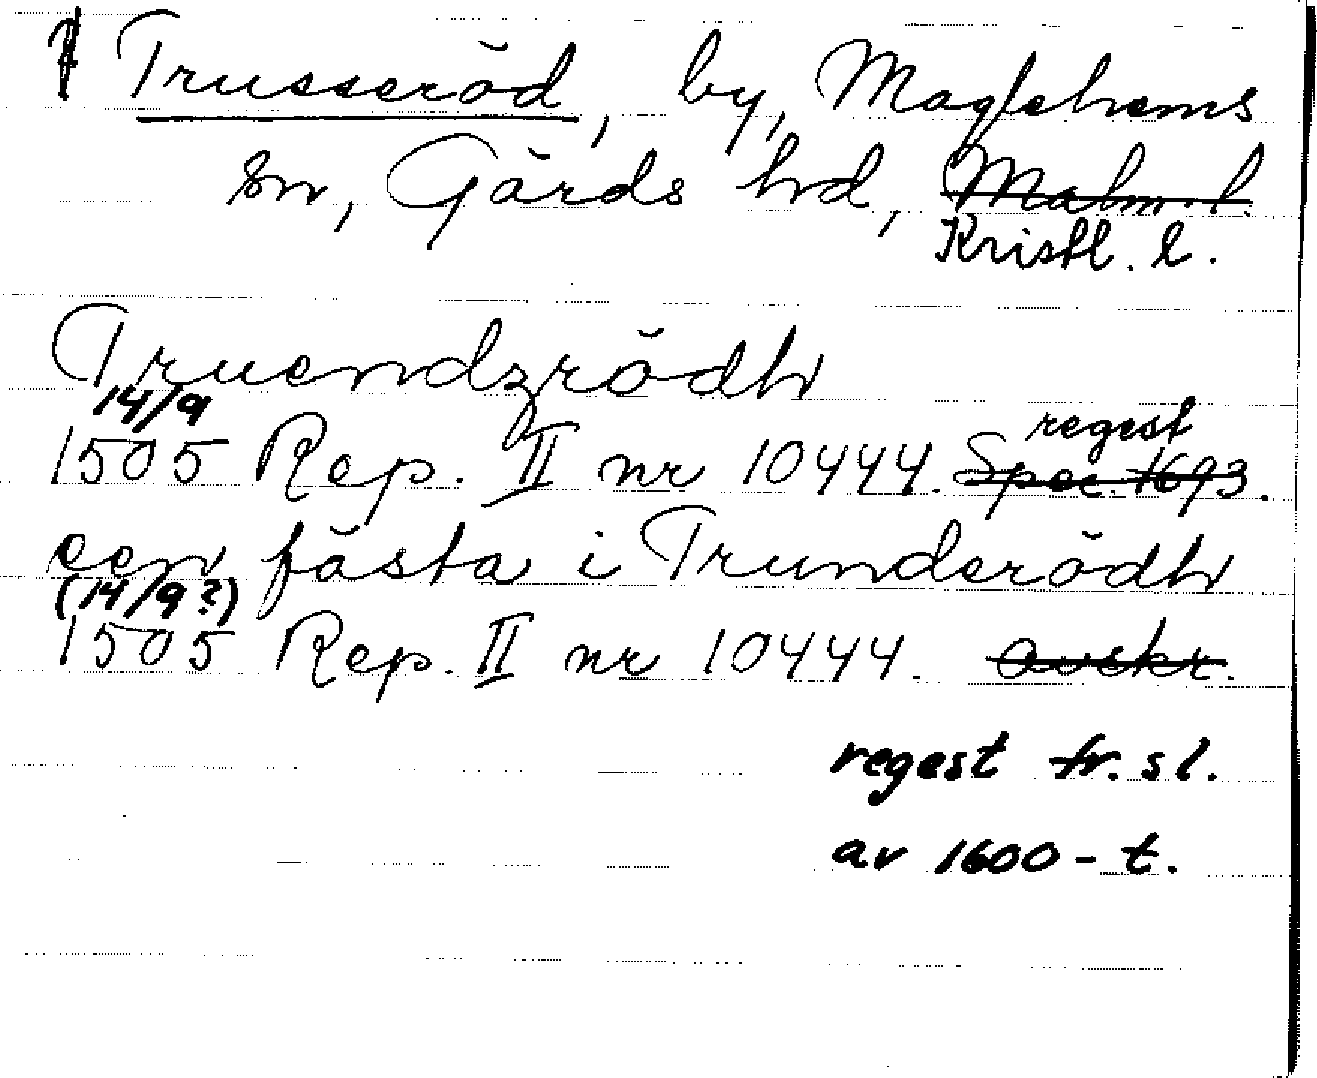 Trusseröd, by, Maglehems
sn, Gärds hd, Malm. l.
Kristl. l.
Truendzrödh
14/9
regest
1505 Rep. II nr 10444. Spec. 1693.
een fästa i Trundserödh
(14/9?)
1505 Rep. II nr 10444. avskr.
regest fr. sl.
av 1600-t.